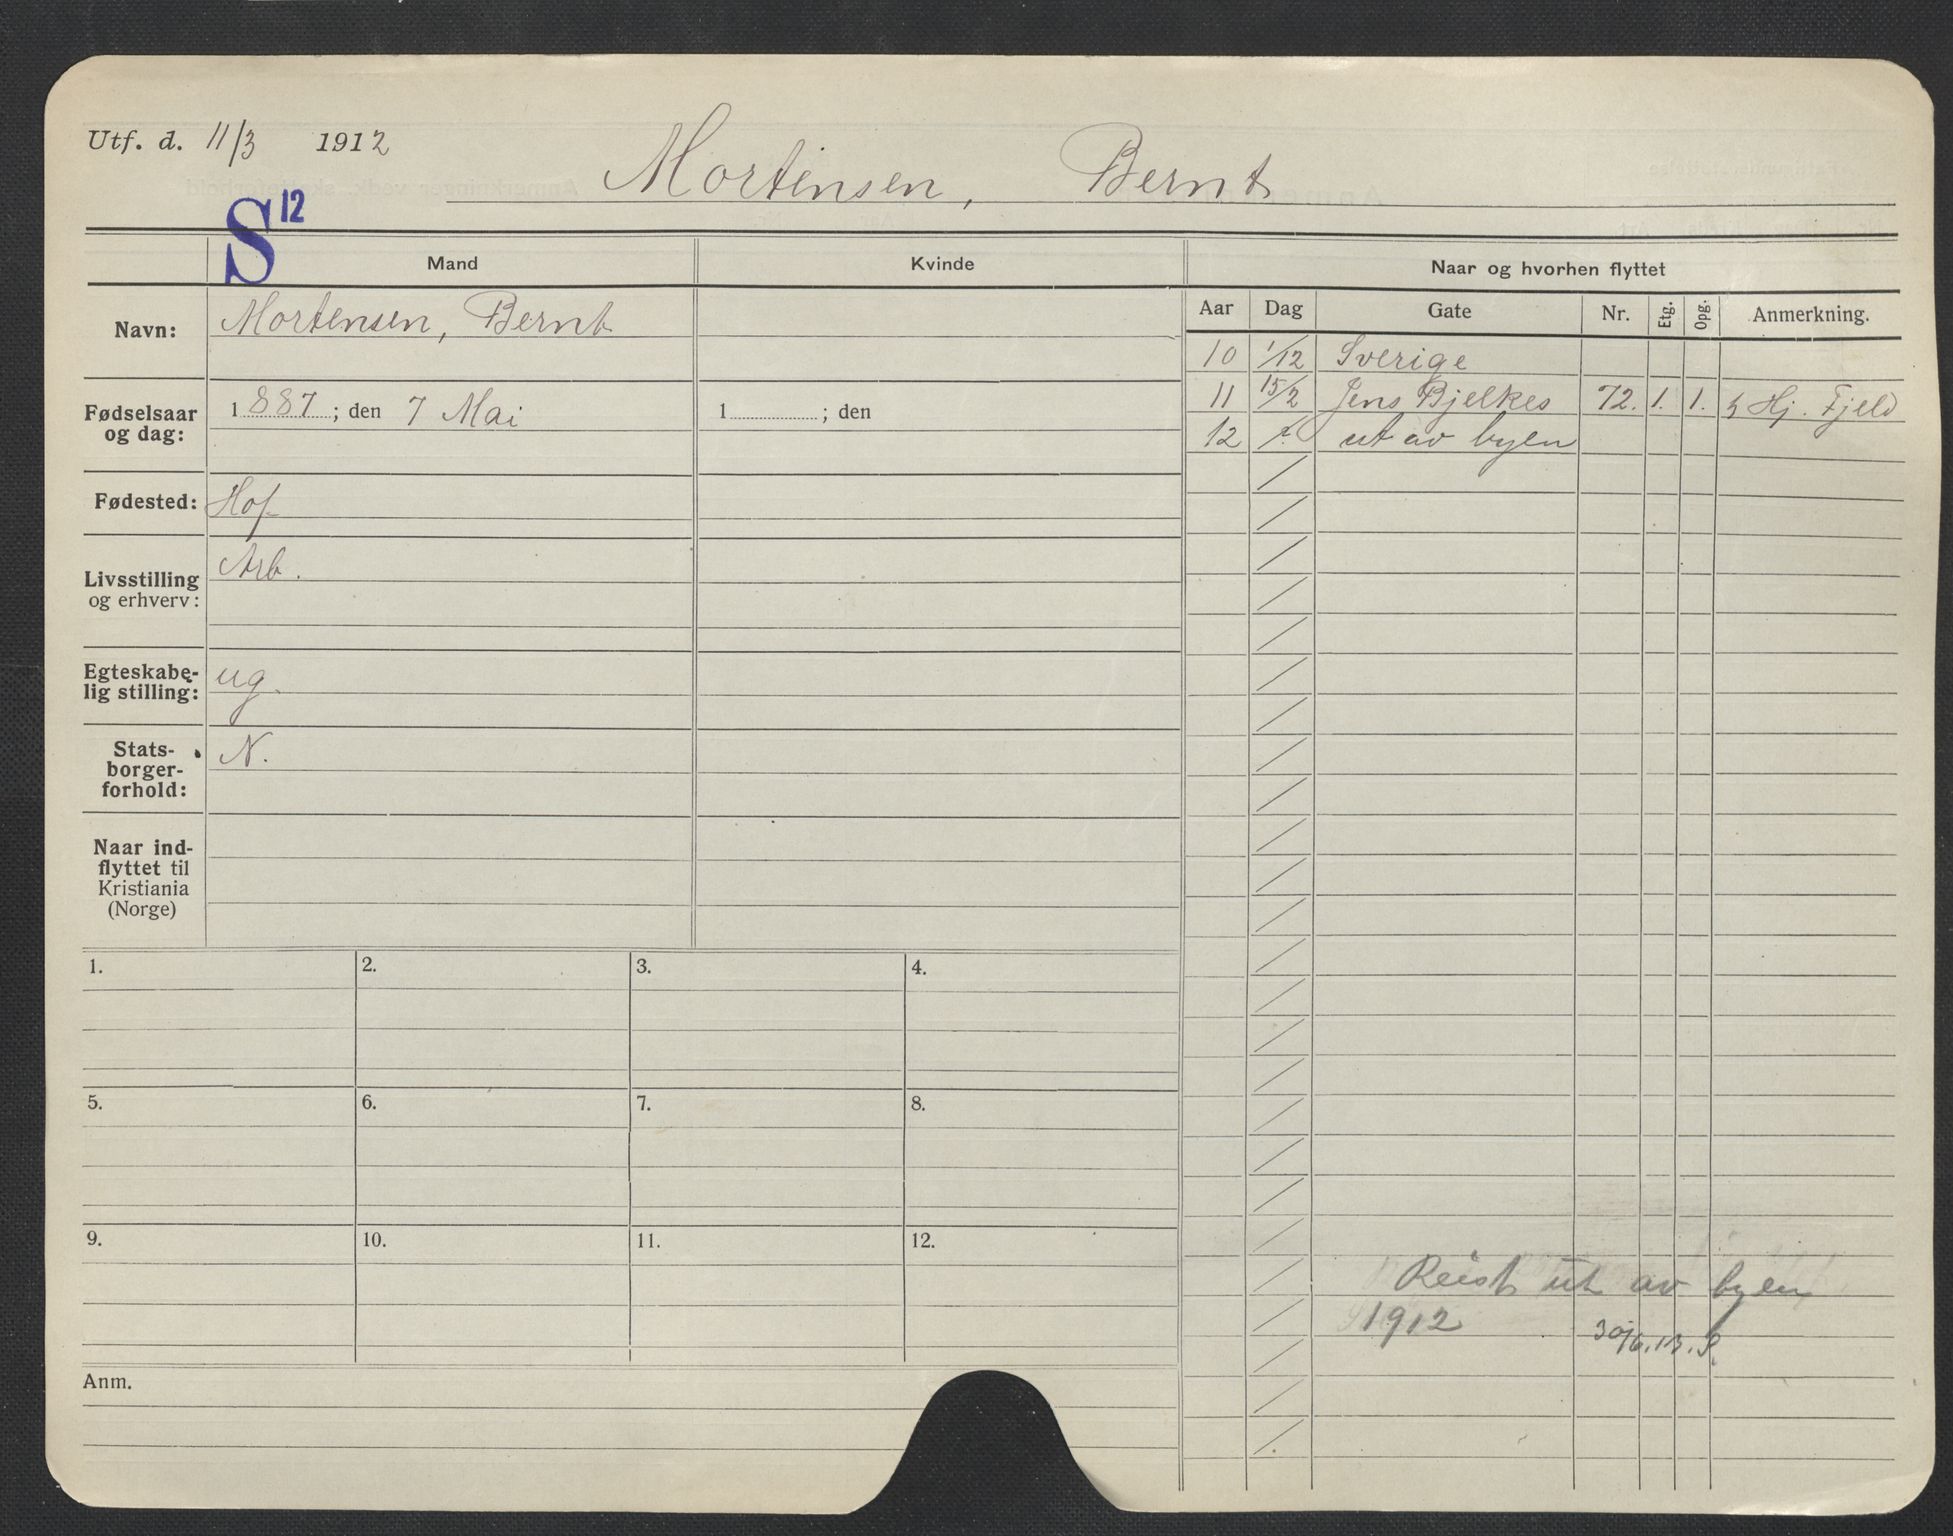 Utf. d. 11/3 1912
Mortensen, Bernt
S 12
Mand
Kvinde
Naar og hvorhen flyttet
Navn:
Mortensen, Bernt
Aar Dag Gate Nr. Etg. Opg. Anmerkning.
10 1/12 Sverige
11 15/2 Jens Bjelkes 72. 1. 1. Hj. Fjeld
12 ut av byen
Fødselsaar og dag:
1887; den 7 Mai
1 ; den
Fødested:
Hof
Livsstilling
og erhverv:
Arb.
Egteskabe-
lig stilling:
ug.
Stats-
borger-
forhold:
N.
Naar ind-
flyttet til
Kristiania
(Norge)
1. 2. 3. 4.
5. 6. 7. 8.
9. 10. 11. 12.
Reist ut av byen
1912
30/6.13. S.
Anm.